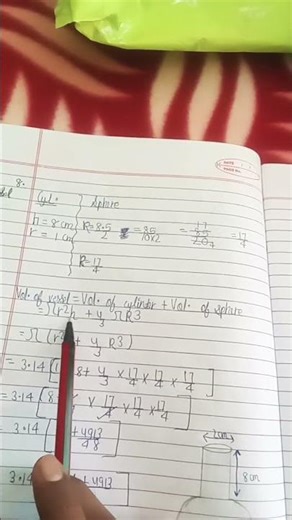 8.
Cyl.
Sphere
h = 8 cm
r = 1 cm
R = 8.5/2 = 85/10×2 = 17/4
R = 17/4
Vol. of vessel = Vol. of cylinder + Vol. of sphere
= πr²h + 4/3 πR3
= π (r² + 4/3 R3)
= 3.14 [ 8 + 4/3 × 17/4 × 17/4 × 17/4 ]
= 3.14 [ 8 × 17/4 × 17/4 ]
= 3.14 [ + 4913/48 ]
3.14 + 4913
2cm
8cm